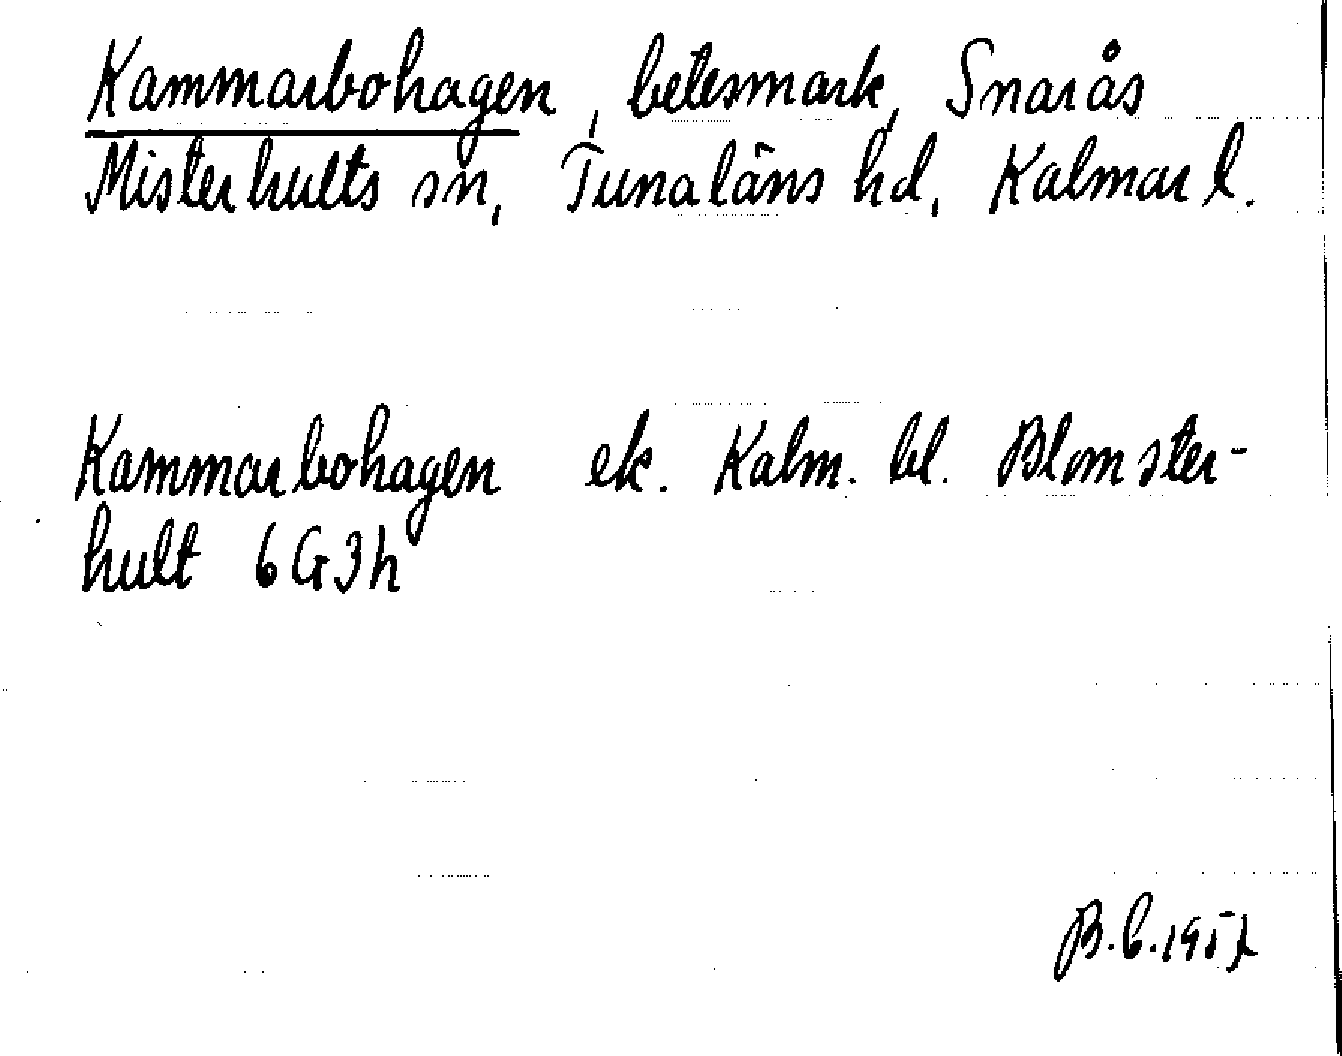 Kammarbohagen, betesmark, Snarås
Misterhults sn, Tunaläns hd, Kalmar l.
Kammarbohagen ek. Kalm. bl. Blomster-
hult 6G3h
B.C.